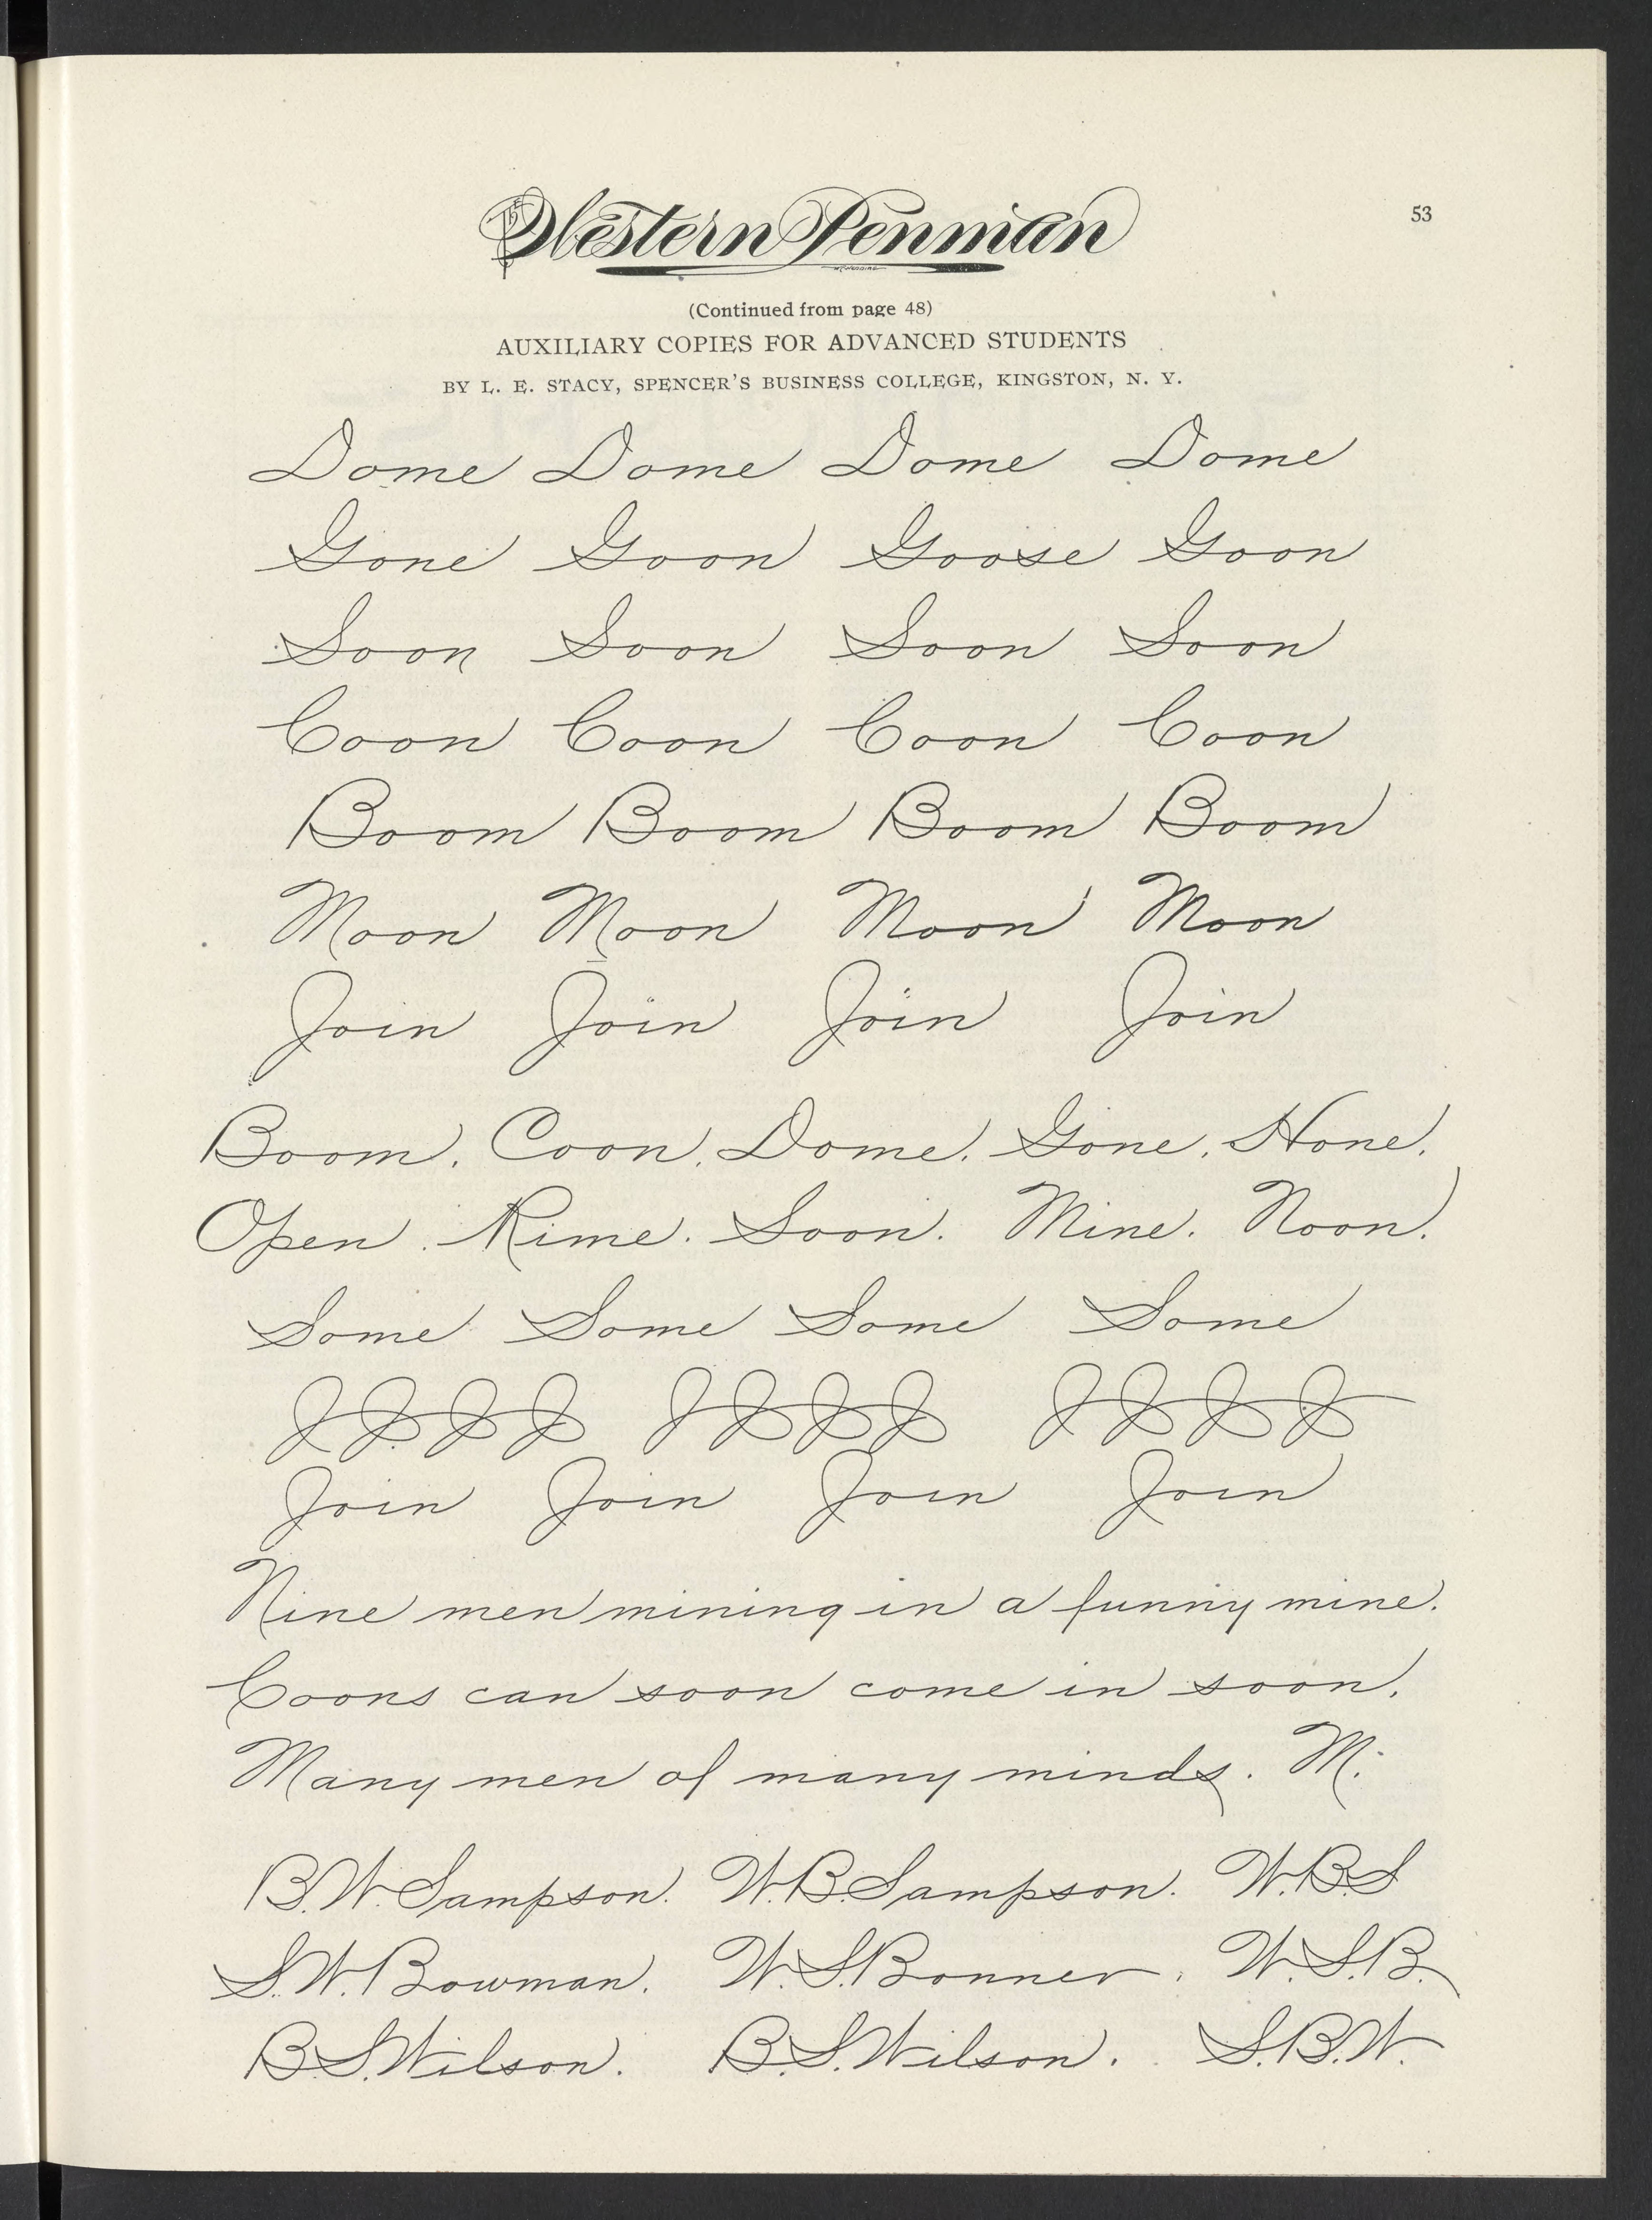 The Western Penman
53
(Continued from page 48)
AUXILIARY COPIES FOR ADVANCED STUDENTS
BY L. E. STACY, SPENCER'S BUSINESS COLLEGE, KINGSTON, N. Y.
Dome Dome Dome Dome
Gone Goon Goose Goon
Soon Soon Soon Soon
Coon Coon Coon Coon
Boom Boom Boom Boom
Moon Moon Moon Moon
Join Join Join Join
Boom. Coon. Dome. Gone. Hone.
Open. Rime. Soon. Mine. Noon.
Some Some Some Some
JJJJ JJJJ JJJJ
Join Join Join Join
Nine men mining in a funny mine.
Coons can soon come in soon.
Many men of many minds. M.
B.W. Sampson. W.B. Sampson. W.B.S
S.W. Bowman. W.S. Bonner. W.S.B.
B.S. Wilson. B.S. Wilson. S.B.W.